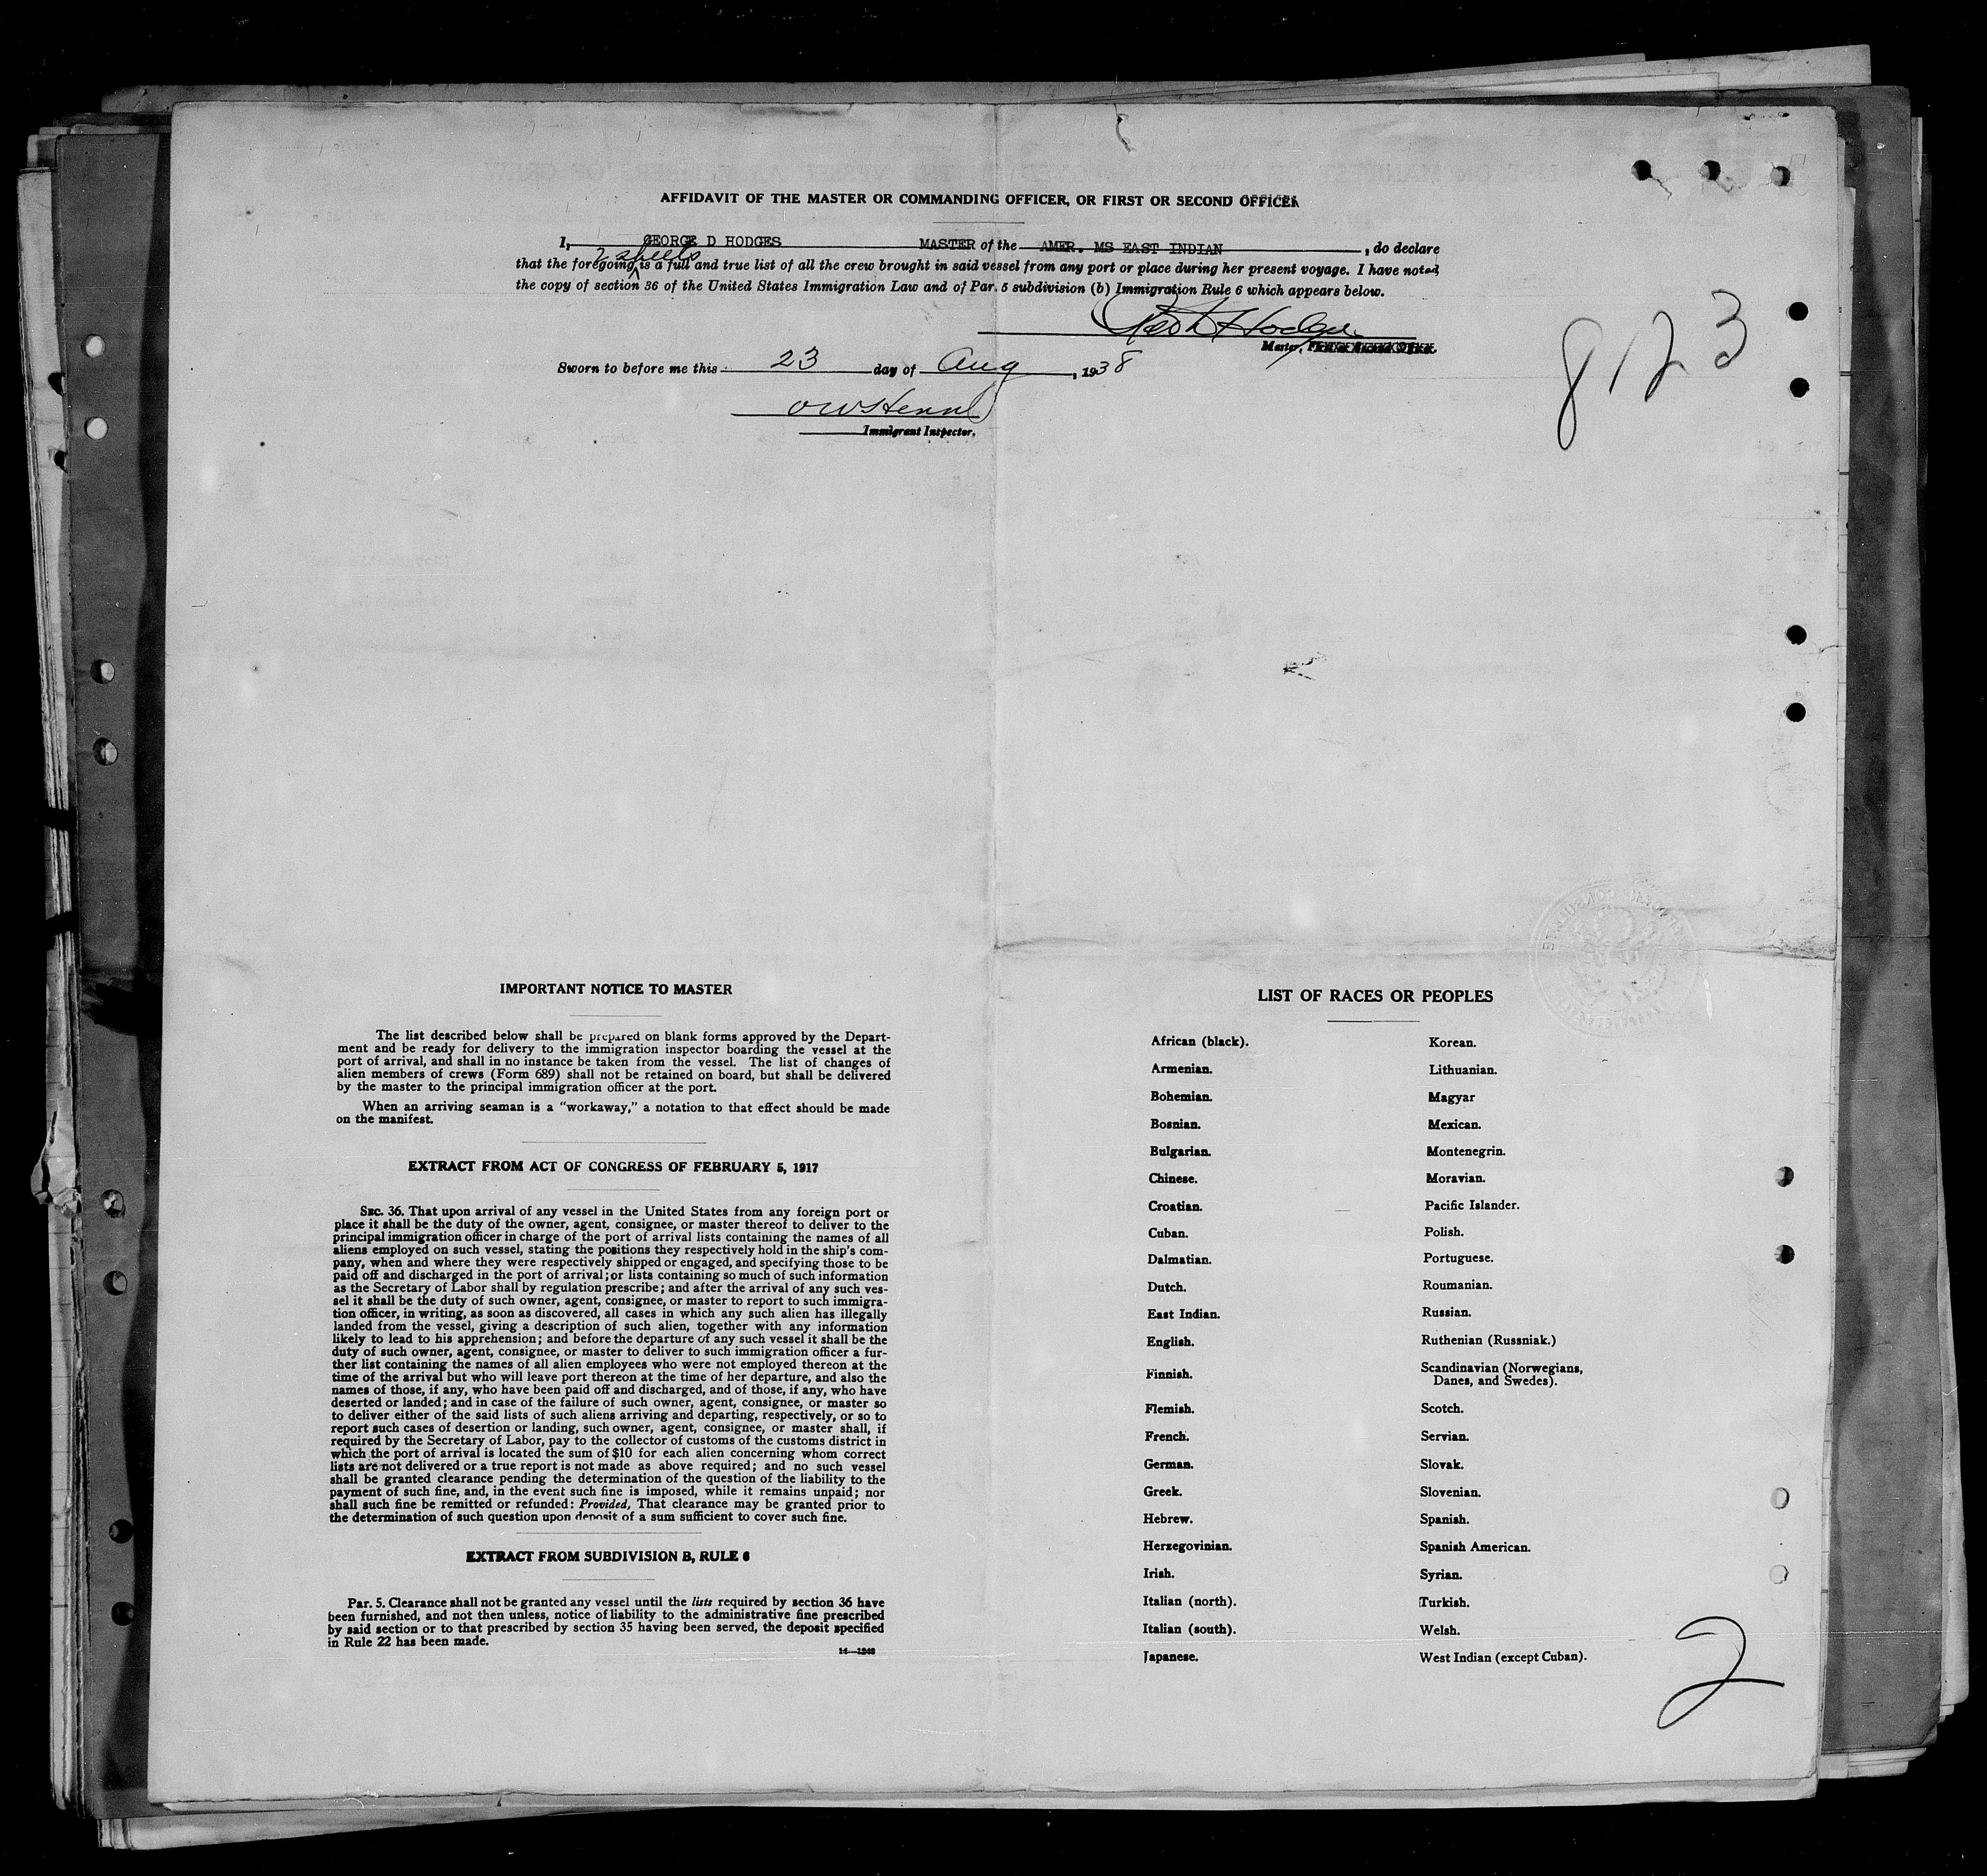 AFFIDAVIT OF THE MASTER OR COMMANDING OFFICER, OR FIRST OR SECOND OFFICER
I, GEORGE D HODGES MASTER of the AMER. MS EAST INDIAN, do declare
2 sheets
that the foregoing is a full and true list of all the crew brought in said vessel from any port or place during her present voyage. I have noted
the copy of section 36 of the United States Immigration Law and of Par. 5 subdivision (b) Immigration Rule 6 which appears below.
Geo D Hodges
Master, First or Second Officer.
Sworn to before me this 23 day of Aug, 1938
Immigrant Inspector.
8123
IMPORTANT NOTICE TO MASTER
The list described below shall be prepared on blank forms approved by the Depart-
ment and be ready for delivery to the immigration inspector boarding the vessel at the
port of arrival, and shall in no instance be taken from the vessel. The list of changes of
alien members of crews (Form 689) shall not be retained on board, but shall be delivered
by the master to the principal immigration officer at the port.
When an arriving seaman is a "workaway," a notation to that effect should be made
on the manifest.
EXTRACT FROM ACT OF CONGRESS OF FEBRUARY 5, 1917
SEC. 36. That upon arrival of any vessel in the United States from any foreign port or
place it shall be the duty of the owner, agent, consignee, or master thereof to deliver to the
principal immigration officer in charge of the port of arrival lists containing the names of all
aliens employed on such vessel, stating the positions they respectively hold in the ship's com-
pany, when and where they were respectively shipped or engaged, and specifying those to be
paid off and discharged in the port of arrival; or lists containing so much of such information
as the Secretary of Labor shall by regulation prescribe; and after the arrival of any such ves-
sel it shall be the duty of such owner, agent, consignee, or master to report to such immigra-
tion officer, in writing, as soon as discovered, all cases in which any such alien has illegally
landed from the vessel, giving a description of such alien, together with any information
likely to lead to his apprehension; and before the departure of any such vessel it shall be the
duty of such owner, agent, consignee, or master to deliver to such immigration officer a fur-
ther list containing the names of all alien employees who were not employed thereon at the
time of the arrival but who will leave port thereon at the time of her departure, and also the
names of those, if any, who have been paid off and discharged, and of those, if any, who have
deserted or landed; and in case of the failure of such owner, agent, consignee, or master so
to deliver either of the said lists of such aliens arriving and departing, respectively, or so to
report such cases of desertion or landing, such owner, agent, consignee, or master shall, if
required by the Secretary of Labor, pay to the collector of customs of the customs district in
which the port of arrival is located the sum of $10 for each alien concerning whom correct
lists are not delivered or a true report is not made as above required; and no such vessel
shall be granted clearance pending the determination of the question of the liability to the
payment of such fine, and, in the event such fine is imposed, while it remains unpaid; nor
shall such fine be remitted or refunded: Provided, That clearance may be granted prior to
the determination of such question upon deposit of a sum sufficient to cover such fine.
EXTRACT FROM SUBDIVISION B, RULE 6
Par. 5. Clearance shall not be granted any vessel until the lists required by section 36 have
been furnished, and not then unless, notice of liability to the administrative fine prescribed
by said section or to that prescribed by section 35 having been served, the deposit specified
in Rule 22 has been made.
14—1240
LIST OF RACES OR PEOPLES
African (black).
Armenian.
Bohemian.
Bosnian.
Bulgarian.
Chinese.
Croatian.
Cuban.
Dalmatian.
Dutch.
East Indian.
English.
Finnish.
Flemish.
French.
German.
Greek.
Hebrew.
Herzegovinian.
Irish.
Italian (north).
Italian (south).
Japanese.
Korean.
Lithuanian.
Magyar
Mexican.
Montenegrin.
Moravian.
Pacific Islander.
Polish.
Portuguese.
Roumanian.
Russian.
Ruthenian (Russniak.)
Scandinavian (Norwegians,
Danes, and Swedes).
Scotch.
Servian.
Slovak.
Slovenian.
Spanish.
Spanish American.
Syrian.
Turkish.
Welsh.
West Indian (except Cuban).
2